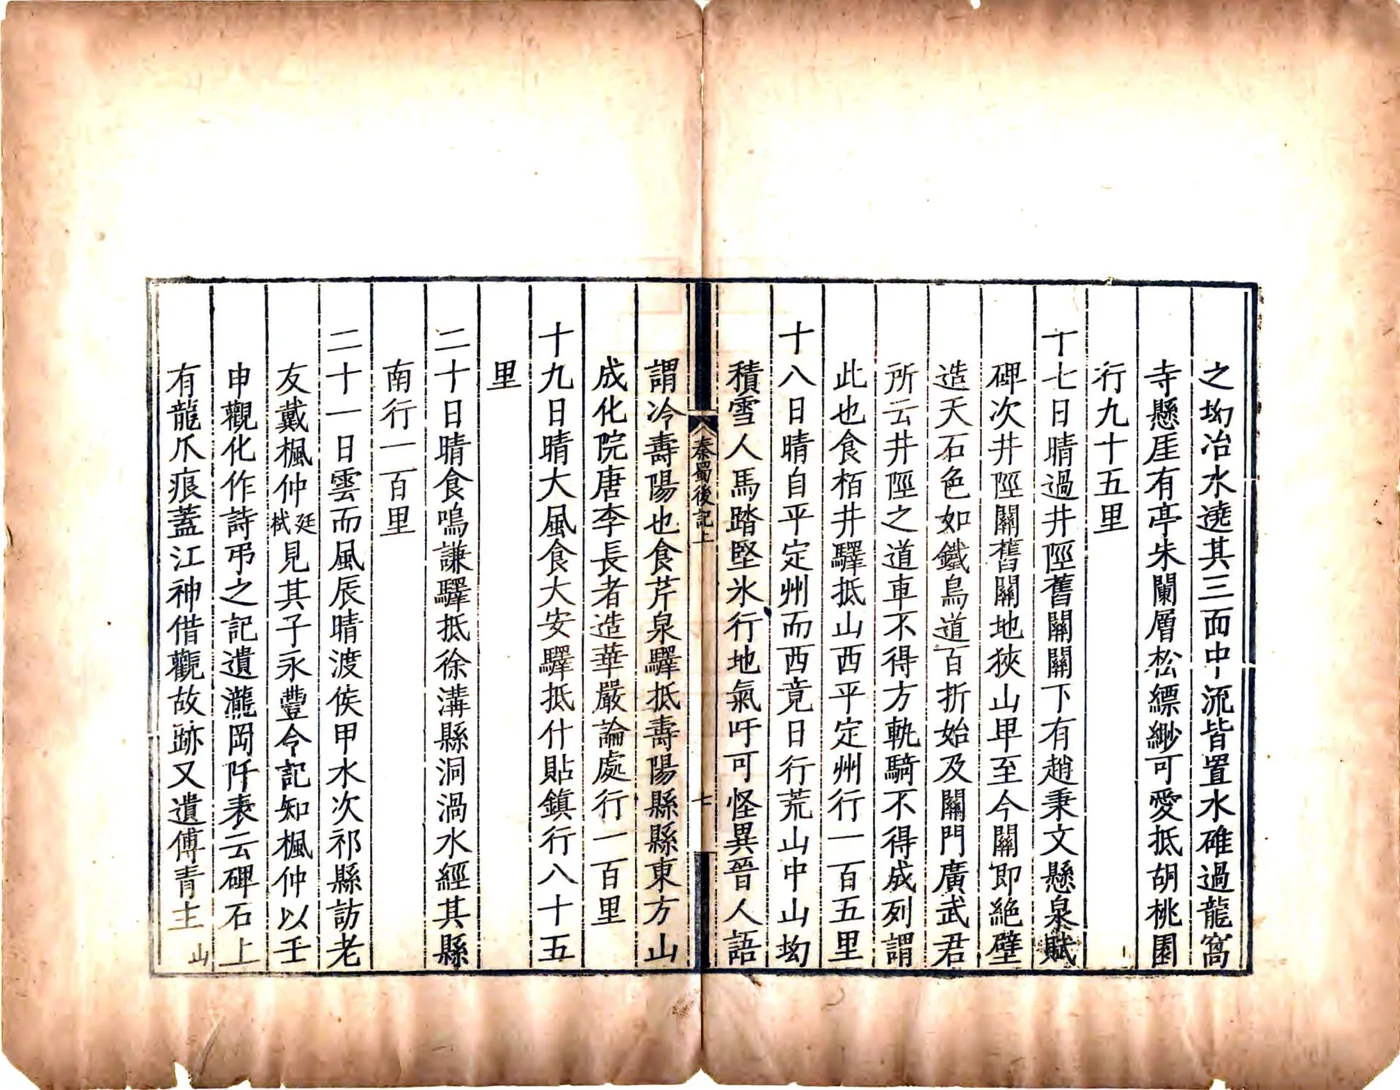 之坳冶水遶其三面中流皆置水碓過龍窩
寺懸厓有亭朱闌層松縹緲可愛抵胡桃園
行九十五里
十七日晴過井陘舊關關下有趙秉文懸泉賦
碑次井陘關舊關地狹山卑至今關即絶壁
造天石色如鐵鳥道百折始及關門廣武君
所云井陘之道車不得方軌騎不得成列謂
此也食栢井驛抵山西平定州行一百五里
十八日晴自平定州而西竟日行荒山中山坳
積雪人馬踏堅氷行地氣吁可怪異晉人語
秦蜀後記上
七
謂冷壽陽也食芹泉驛抵壽陽縣縣東方山
成化院唐李長者造華嚴論處行一百里
十九日晴大風食大安驛抵什貼鎮行八十五
里
二十日晴食鳴謙驛抵徐溝縣洞渦水經其縣
南行一百里
二十一日雲而風辰晴渡侯甲水次祁縣訪老
友戴楓仲廷栻見其子永豐令記知楓仲以壬
申觀化作詩弔之記遺瀧岡阡表云碑石上
有龍爪痕蓋江神借觀故跡又遺傅青主山